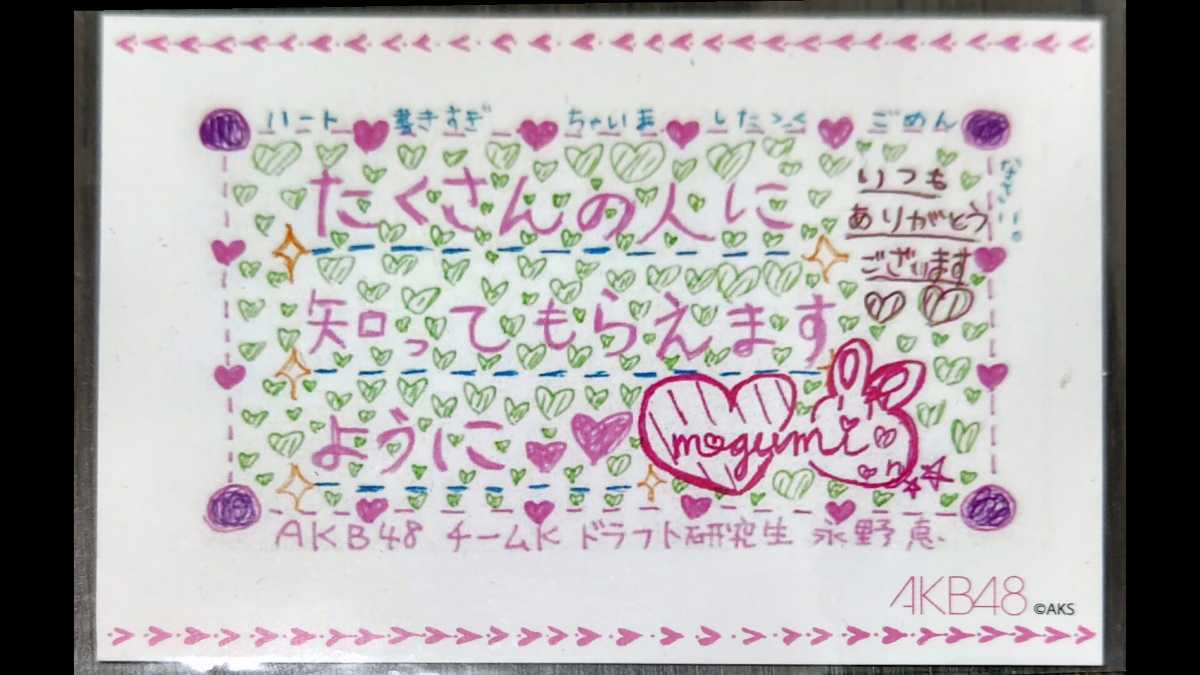 ハート 書きすぎ ちゃいま したヽ< ごめん
なさい!。
たくさんの人に
知ってもらえます
ように
いつも
ありがとう
ございます
mogumi
AKB48 チームK ドラフト研究生 永野恵
AKB48 ©AKS